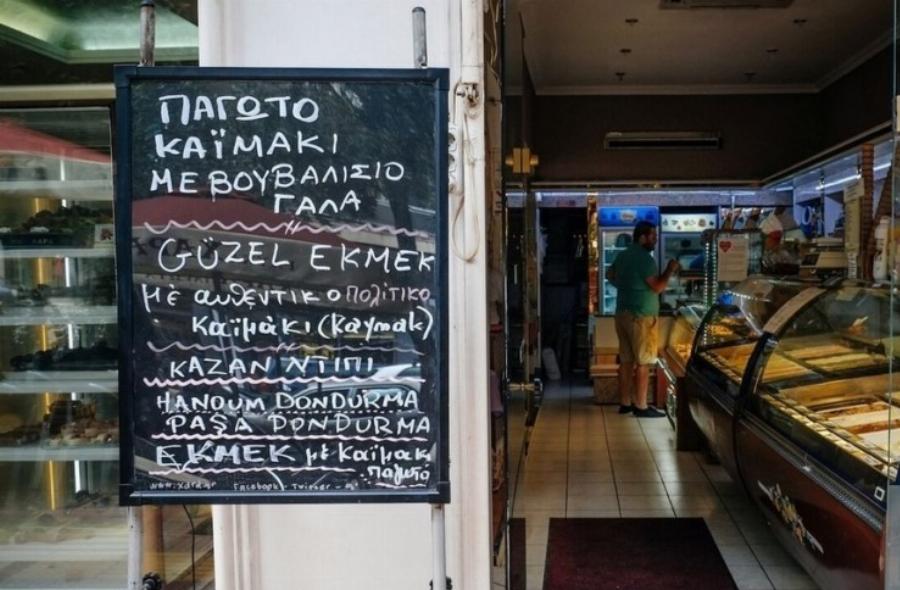 ΠΑΓΩΤΟ
ΚΑΪΜΑΚΙ
ΜΕ ΒΟΥΒΑΛΙΣΙΟ
ΓΑΛΑ
GÜZEL EKMEK
με αυθεντικο πολίτικο
καϊμάκι (kaymak)
ΚΑΖΑΝ ΝΤΙΠΙ
HANOUM DONDURMA
PAŞA DONDURMA
EKMEK με καϊμακι
παγωτό
Facebook - Twitter -